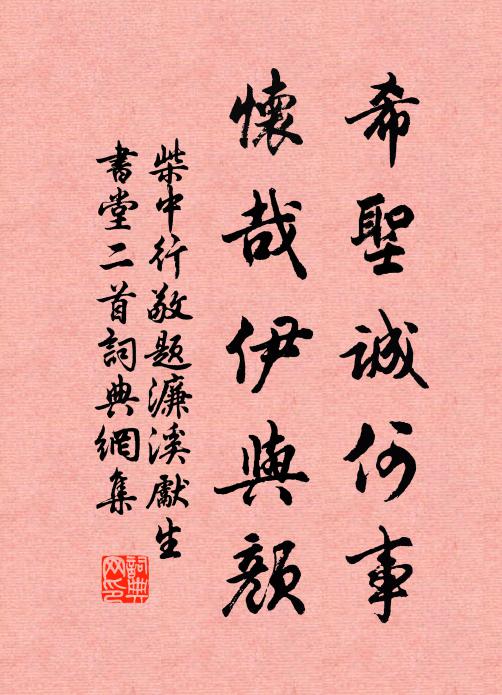 希聖誠何事
懷哉伊與顏
柴中行敬題濂溪獻生
書堂二首詞典網集
詞典网印